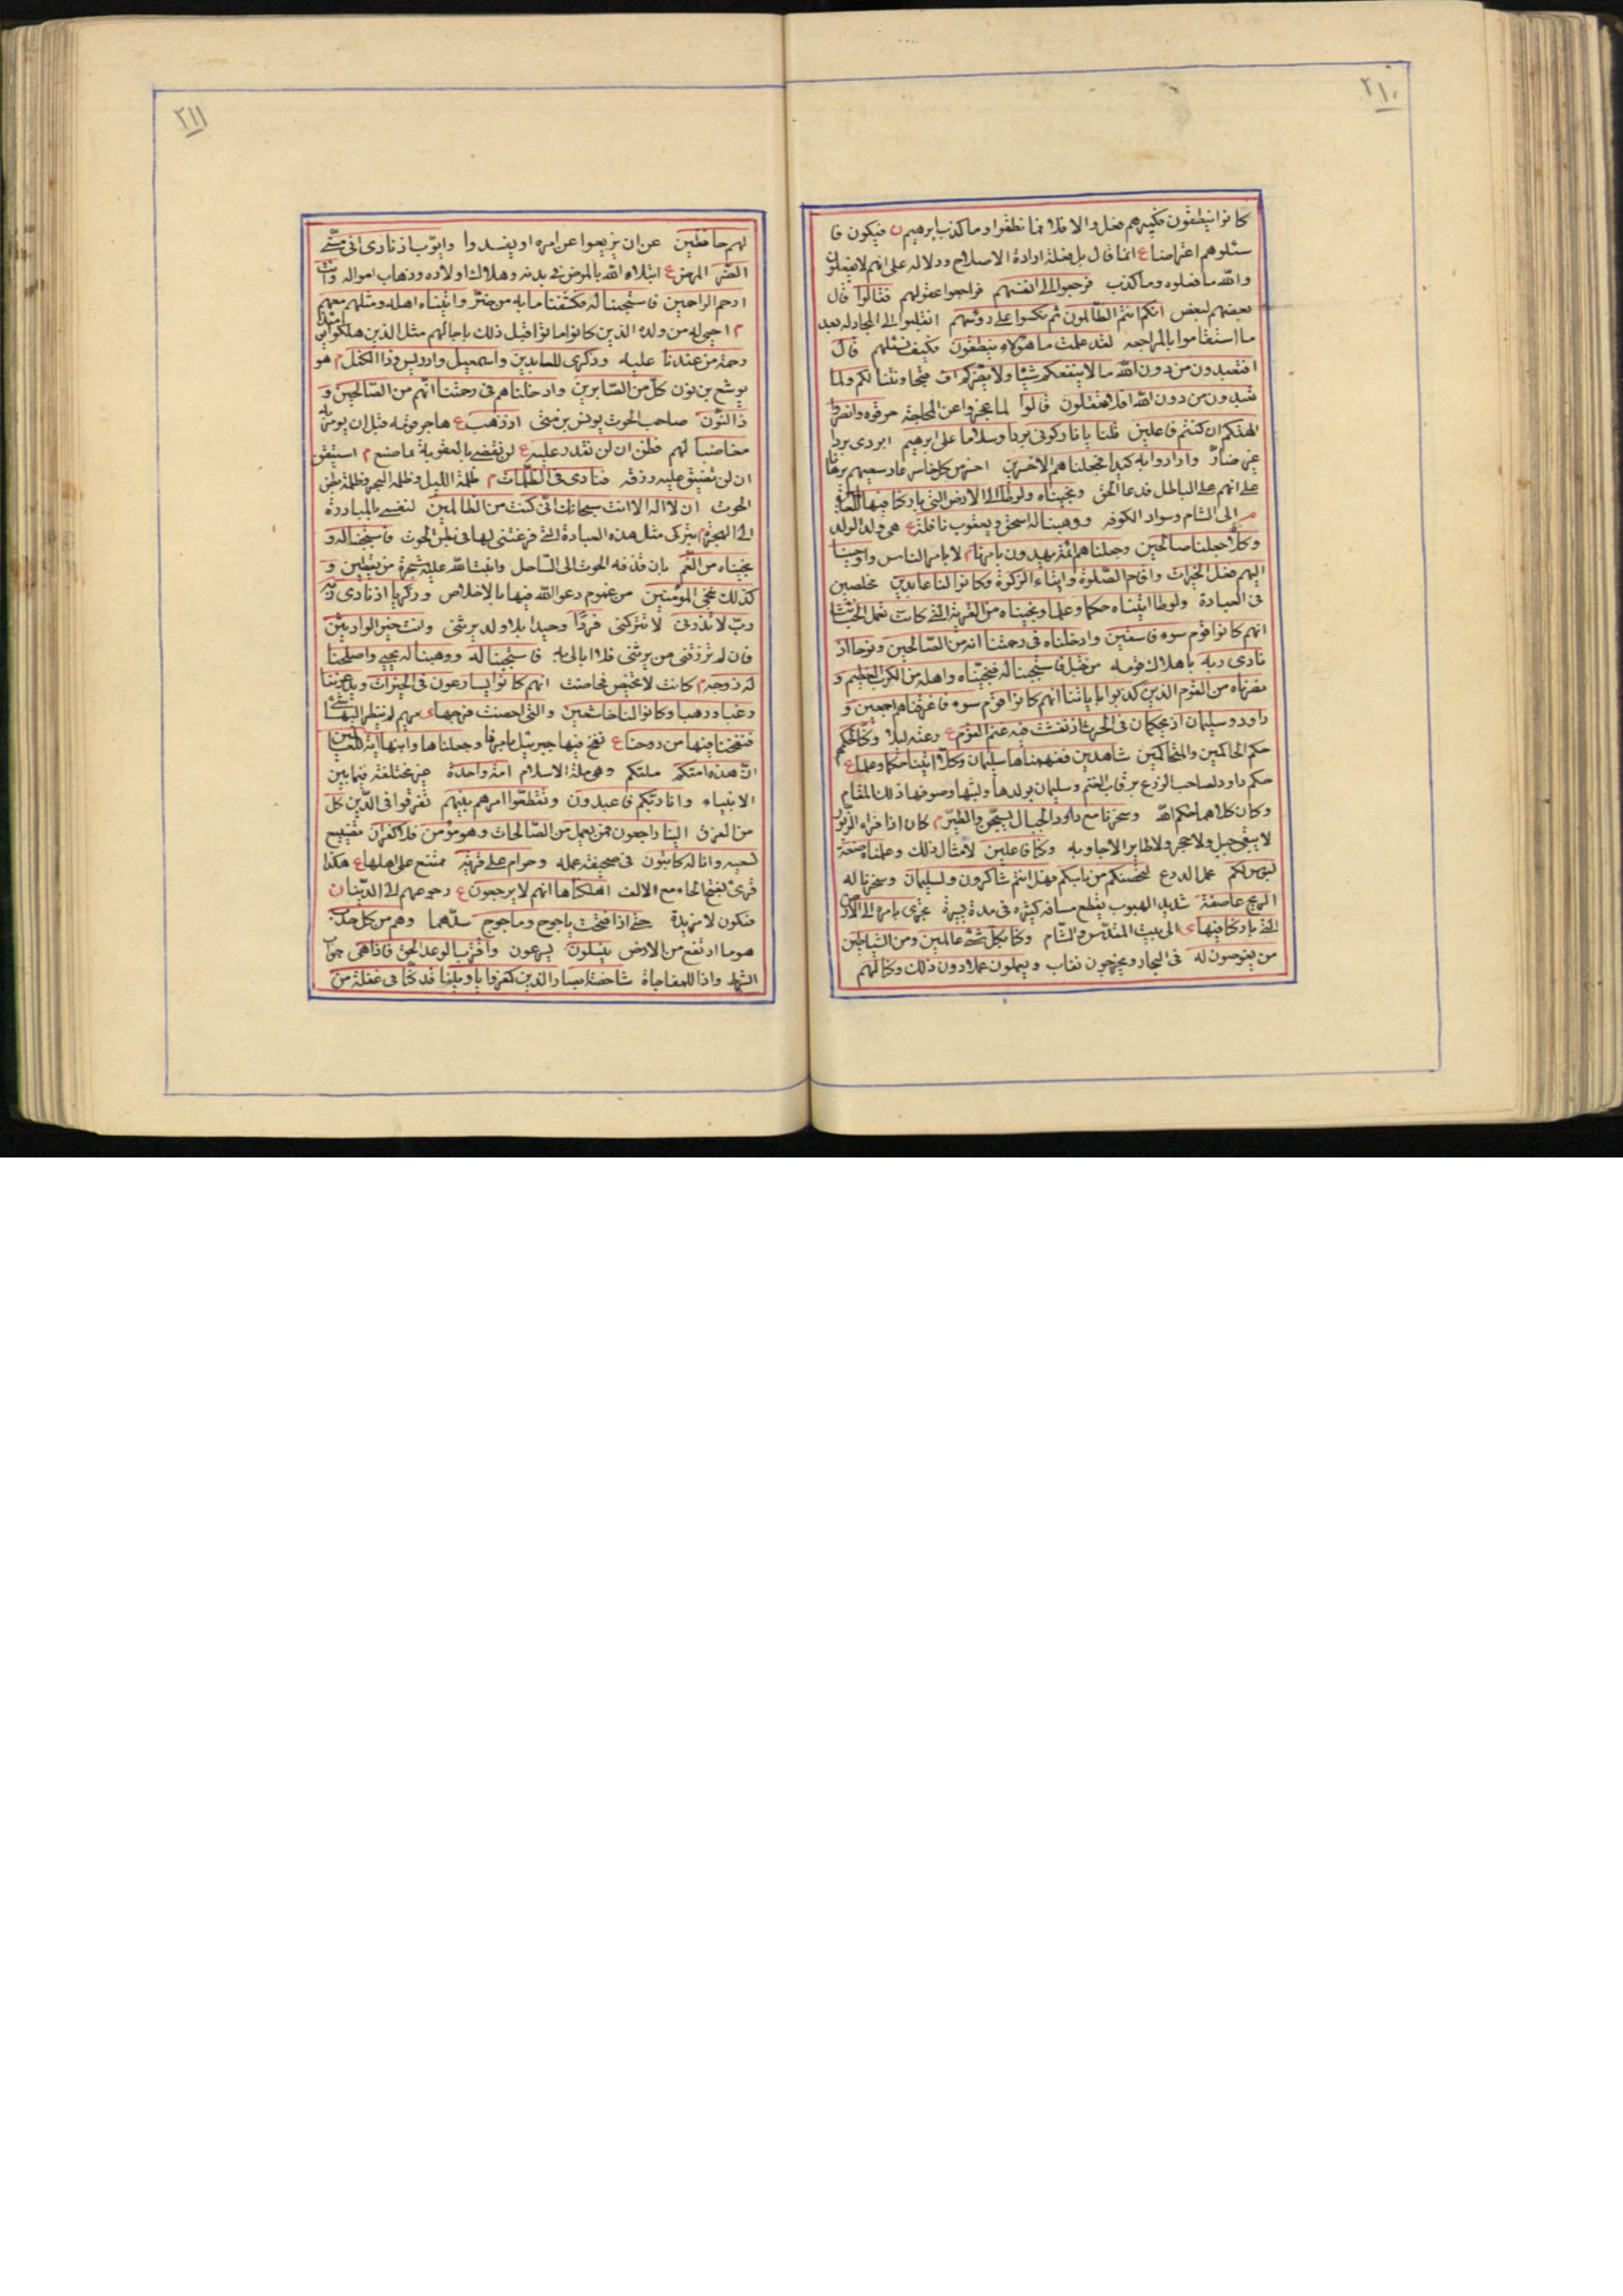 ٢١٠
كانوا ينطقون فكبيرهم فعل والا فلا فما نطقوا وما كذب ابرهيم ن فيكون فا
سئلوهم اعتراضا ع انما قال بل فعله ارادة الاصلاح ودلالة على انهم لا يفعلون
والله ما فعلوه وما كذب فرجعوا الى انفسهم فراجعوا عقولهم فقالوا قال
بعضهم لبعض انكم انتم الظالمون ثم نكسوا على رؤسهم انقلبوا الى المجادلة بعد
ما استقاموا بالمراجعه لقد علمت ما هؤلاء ينطقون فكيف نسئلهم قال
افتعبدون من دون الله ما لا ينفعكم شيئا ولا يضركم اف لكم ولما
تعبدون من دون الله افلا تعقلون قالوا لما عجزوا عن المحاجة حرقوه وانصروا
الهتكم ان كنتم فاعلين قلنا يا نار كوني بردا وسلاما على ابرهيم ابردي بردا
غير ضار وارادوا به كيدا فجعلناهم الاخسرين اخسر من كل خاسر عاد سعيهم برهانا
على انهم على الباطل ونجيناه ولوطا الى الارض التي باركنا فيها للعالمين
الى الشام وسواد الكوفه ووهبنا له اسحق ويعقوب نافلة ع هي ولد الولد
وكلا جعلنا صالحين وجعلناهم ائمة يهدون بامرنا م لا بامر الناس واوحينا
اليهم فعل الخيرات واقام الصلوة وايتاء الزكوة وكانوا لنا عابدين مخلصين
في العبادة ولوطا اتيناه حكما وعلما ونجيناه من القرية التي كانت تعمل الخبائث
انهم كانوا قوم سوء فاسقين وادخلناه في رحمتنا انه من الصالحين ونوحا اذ
نادى ربه باهلاك قومه من قبل فاستجبنا له فنجيناه واهله من الكرب العظيم و
نصرناه من القوم الذين كذبوا باياتنا انهم كانوا قوم سوء فاغرقناهم اجمعين و
داود وسليمان اذ يحكمان في الحرث اذ نفشت فيه غنم القوم ع رعته ليلا وكنا لحكمهم
حكم الحاكمين والمتحاكمين شاهدين ففهمناها سليمان وكلا اتينا حكما وعلما ع
حكم داود لصاحب الزرع برقاب الغنم وسليمان بولدها ولبنها وصوفها ذلك المقام
وكان كلاهما حكم الله وسخرنا مع داود الجبال يسبحن والطير م كان اذا قراء الزبور
لا يبقى جبل ولا حجر ولا طاير الا جاوبه وكنا فاعلين لامثال ذلك وعلمناه صنعة
لبوس لكم عمل الدرع لتحصنكم من باسكم فهل انتم شاكرون ولسليمان وسخرنا له
الريح عاصفة شديد الهبوب يقطع مسافة كثيره في مدة يسيرة تجري بامره الى الارض
التي باركنا فيها ى الى بيت المقدس والشام وكنا بكل شئ عالمين ومن الشياطين
من يغوصون له في البحار ويخرجون نفايس ويعملون عملا دون ذلك وكنا لهم
٢١١
لهم حافظين عن ان يزيغوا عن امره او يفسدوا وايوب اذ نادى اني مسني
الضر المرض ع ابتلاه الله بالمرض في بدنه وهلاك اولاده وذهاب امواله وانت
ارحم الراحمين فاستجبنا له فكشفنا ما به من ضر واتيناه اهله ومثلهم معهم
م احيي له من ولده الذين كانوا ماتوا قبل ذلك باجالهم مثل الذين هلكوا يومئذ
رحمة من عندنا عليه وذكرى للعابدين واسمعيل وادريس وذا الكفل م هو
يوشع بن نون كل من الصابرين وادخلناهم في رحمتنا انهم من الصالحين و
ذا النون صاحب الحوت يونس بن متى اذ ذهب ع هاجر قومه قبل ان يؤمر به
مغاضبا لهم فظن ان لن نقدر عليه ع لن نقضي بالعقوبة بما صنع م استيقن
ان لن نضيق عليه رزقه فنادى في الظلمات م ظلمة الليل وظلمة البحر وظلمة بطن
الحوت ان لا اله الا انت سبحانك اني كنت من الظالمين لنفسي بالمبادرة
الى الهجرة م بتركي مثل هذه العبادة التي فرغتني لها في بطن الحوت فاستجبنا له و
نجيناه من الغم بان قذفه الحوت الى الساحل وانبت الله عليه شجرة من يقطين و
كذلك ننجي المؤمنين من غموم دعوا الله فيها بالاخلاص وزكريا اذ نادى ربه
رب لا تذرني لا تتركني فردا وحيدا بلا ولد يرثني وانت خير الوارثين
فان لم ترزقني من يرثني فلا ابالي به فاستجبنا له ووهبنا له يحيى واصلحنا
له زوجه م كانت لا تحيض فحاضت انهم كانوا يسارعون في الخيرات ويدعوننا
رغبا ورهبا وكانوا لنا خاشعين والتي احصنت فرجها ى مريم لم ينظر اليها شئ
فنفخنا فيها من روحنا ع نفخ فيها جبرئيل بامرنا وجعلناها وابنها اية للعالمين
ان هذه امتكم ملتكم وهي ملة الاسلام امة واحدة غير مختلفة فيما بين
الانبياء وانا ربكم فاعبدون وتقطعوا امرهم بينهم تفرقوا في الدين كل
من الفرق الينا راجعون فمن يعمل من الصالحات وهو مؤمن فلا كفران تضييع
لسعيه وانا له كاتبون في صحيفة عمله وحرام على قرية ممتنع على اهلها ع هكذا
قرئ بفتح الحاء مع الالف اهلكناها انهم لا يرجعون ع رجوعهم الى الدنيا ن
فتكون لا مزيدة حتى اذا فتحت ياجوج وماجوج سدهما وهم من كل حدب
هو ما ارتفع من الارض ينسلون يسرعون واقترب الوعد الحق فاذا هي جواب
الشرط واذا للمفاجاة شاخصة ابصار الذين كفروا يا ويلنا قد كنا في غفلة من